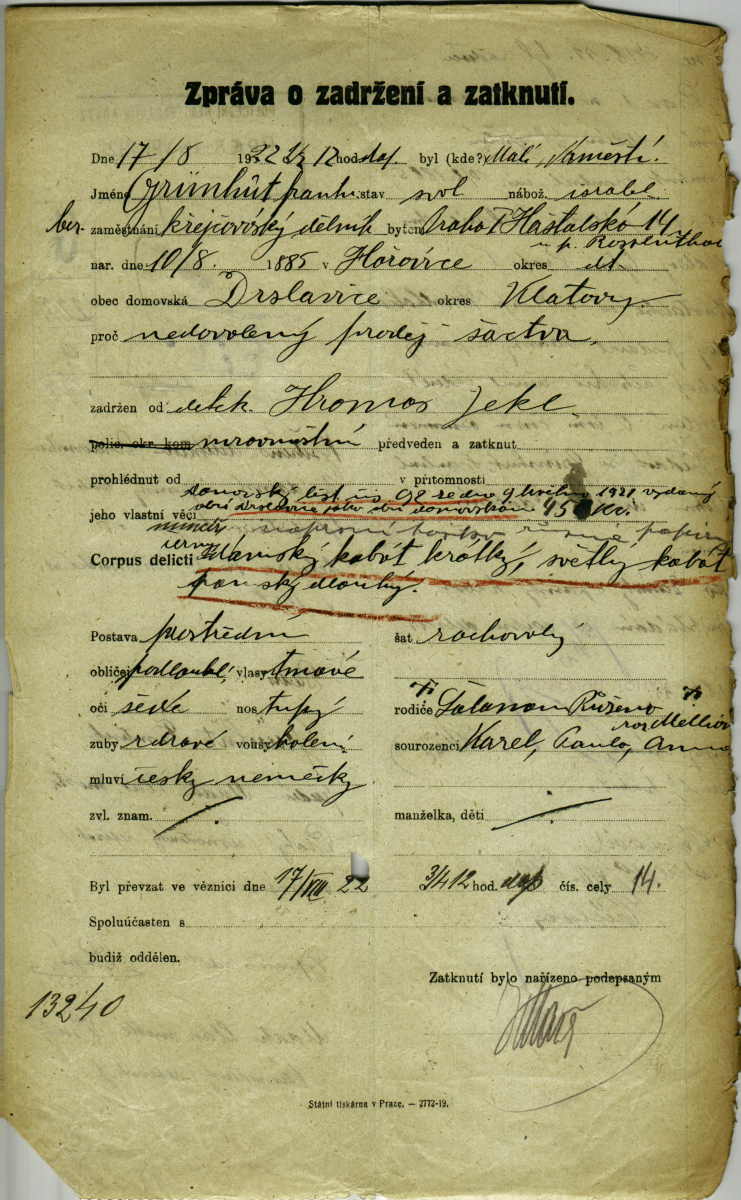 Zpráva o zadržení a zatknutí.
Dne 17/8 1922 o ½ 12 hod. dop. byl (kde?) Malé náměstí.
Jméno Grünhut frant. stav svob. nábož. israel.
zaměstnání krejčovský dělník bytem Praha I Haštalská 14
u p. Rosenthal
nar. dne 10/8 1885 v Hořovice okres dt.
obec domovská Drslavice okres Klatovy.
proč nedovolený prodej šactva.
zadržen od detek. Hromas Jekl.
polic. okr. kom. předveden a zatknut
prohlédnut od v přítomnosti
domovský list čís 98 ze dne 9 května 1921 vydaný
jeho vlastní věci obcí Drslavice jako obcí domovskou 45 Kč.
náprsní tašku různé papíry
černý
Corpus delicti dámský kabát krátký, světlý kabát
pánský dlouhý.
Postava prostřední šat
obličej podlouhlý, vlasy tmavé
oči šedé nos tupý rodiče Salamon Růžena
roz.
zuby zdravé vousy holený sourozenci Karel, Pavla, Anna
mluví česky německy
zvl. znam. /. manželka, děti /.
Byl převzat ve věznici dne 17/VIII 22 o ¾ 12 hod. dop čís. cely 14.
Spoluúčasten s
budiž oddělen.
Zatknutí bylo nařízeno podepsaným
13240
Státní tiskárna v Praze. — 2772-19.